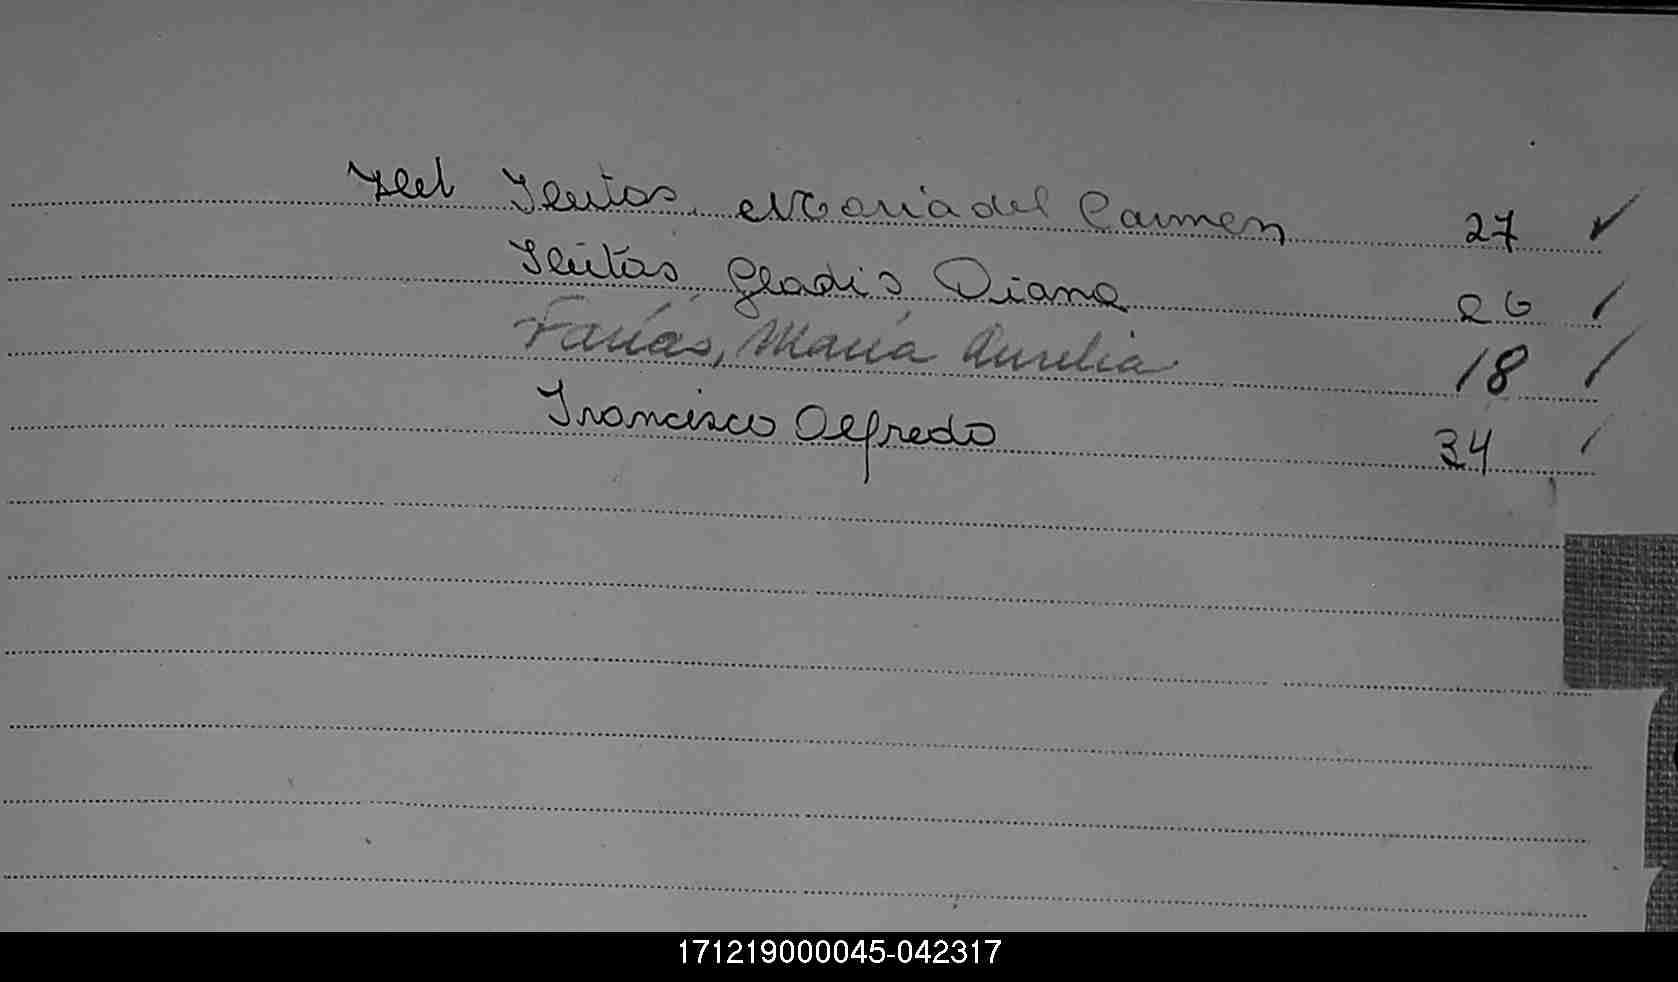 Fleitas, Maria del Carmen 27
Fleitas Gladis Diana 26
Farías, María Aurelia 18
Francisco Alfredo 34
171219000045-042317